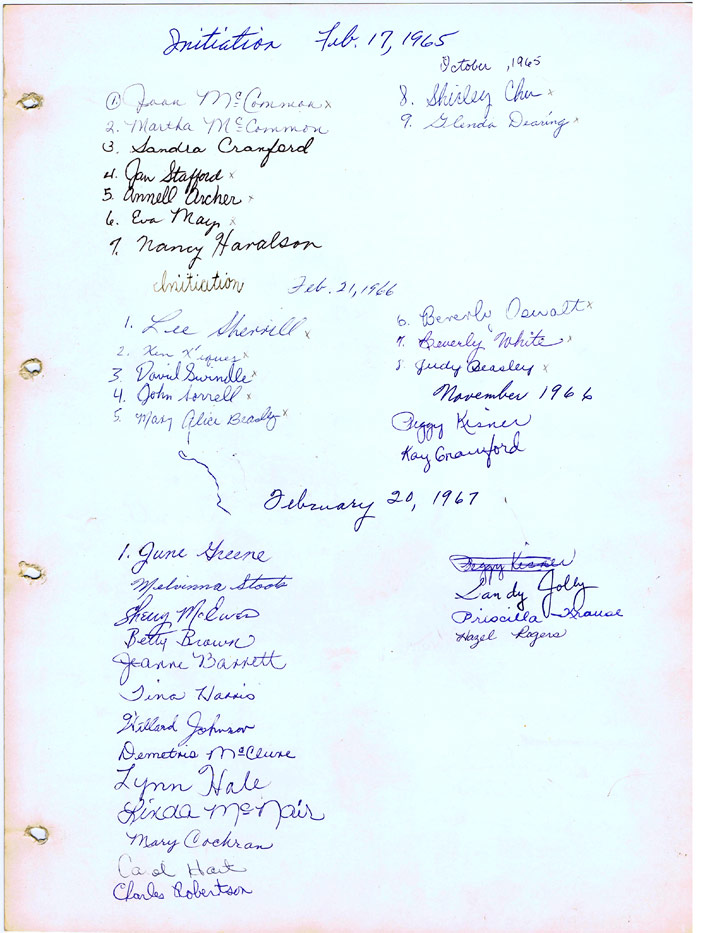 Initiation Feb. 17, 1965
① Joan McCommon x
2. Martha McCommon
3. Sandra Cranford
4. Jan Stafford x
5. Annell Archer x
6. Eva May x
7. Nancy Haralson
October, 1965
8. Shirley Chu x
9. Glenda Dearing x
Initiation Feb. 21, 1966
1. Lee Sherrill x
2. Ken x
3. David Swindle x
4. John Sorrell x
5. Mary Alice Beasley x
6. Beverly Oswalt x
7. Beverly White x
8. Judy Beasley x
November 1966
Peggy Kisner
Kay Crawford
February 20, 1967
1. June Greene
Melvinna Stoots
Sherry McEwen
Betty Brown
Jeanne Barrett
Tina Harris
Willard Johnson
Demetris McClure
Lynn Hale
Linda McNair
Mary Cochran
Carol Hart
Charles Robertson
Peggy Kisner
Sandy Jolly
Priscilla Krause
Hazel Rogers